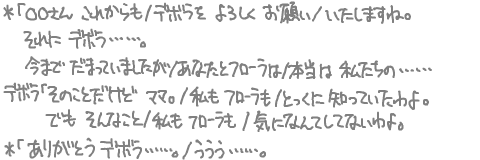 *「〇〇さん これからも/デボラを よろしく お願い/いたしますね。
それに デボラ……。
今まで だまっていましたが/あなたとフローラは/本当は 私たちの……
デボラ「そのことだけど ママ。/私も フローラも/とっくに 知っていたわよ。
でも そんなこと/私も フローラも/気になんてしてないわよ。
*「ありがとう デボラ……。/ううう……。